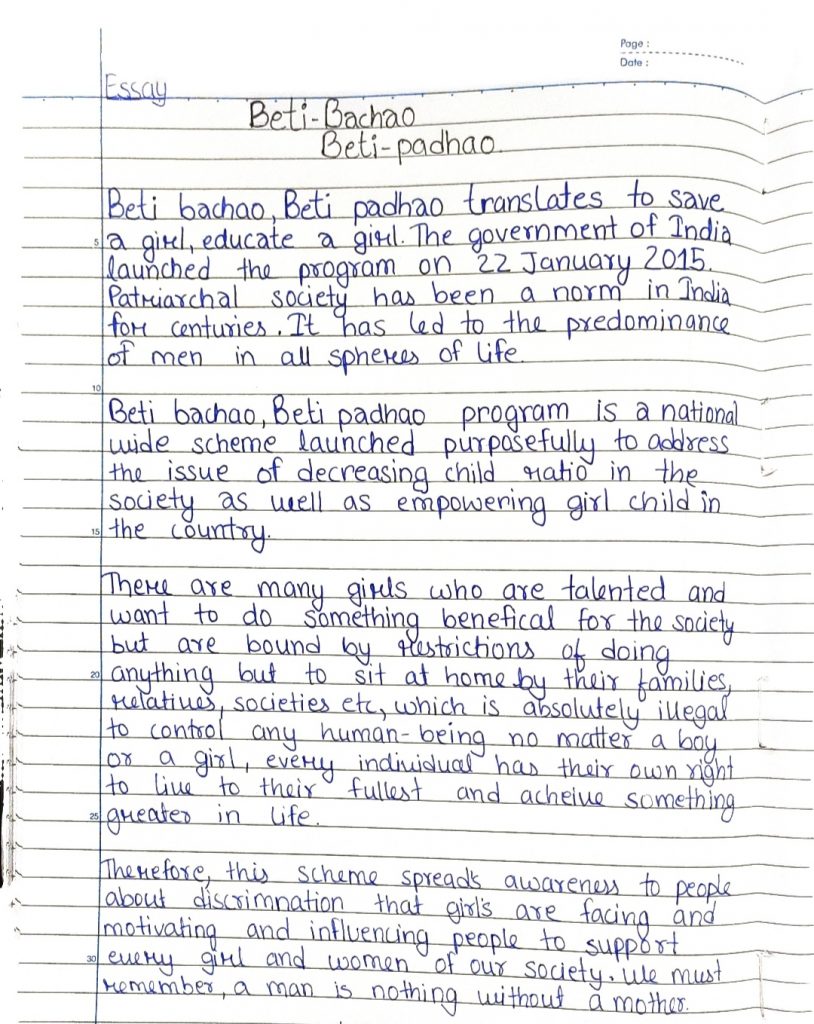 Page :
Date :
Essay
Beti-Bachao
Beti-padhao
Beti bachao, Beti padhao translates to save
5 a girl, educate a girl. The government of India
launched the program on 22 January 2015.
Patriarchal society has been a norm in India
for centuries. It has led to the predominance
of men in all spheres of life.
10
Beti bachao, Beti padhao program is a national
wide scheme launched purposefully to address
the issue of decreasing child ratio in the
society as well as empowering girl child in
15 the country.
There are many girls who are talented and
want to do something benefical for the society
but are bound by restrictions of doing
20 anything but to sit at home by their families,
relatives, societies etc, which is absolutely illegal
to control any human-being no matter a boy
or a girl, every individual has their own right
to live to their fullest and acheive something
25 greater in life.
Therefore, this scheme spreads awareness to people
about discrimnation that girls are facing and
motivating and influencing people to support
30 every girl and women of our society. We must
remember, a man is nothing without a mother.